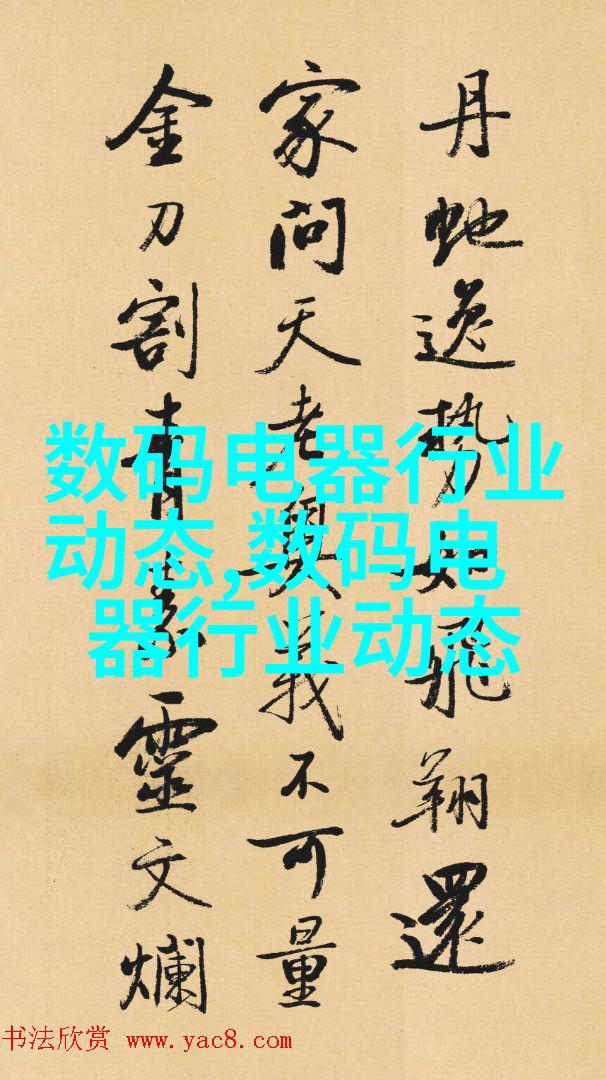 丹虵逸勢如飛翔還
家問天老奧義不可量
金刀割青素靈文爛
数码电器行业
动态,数码电
器行业动态
书法欣赏 www.yac8.com